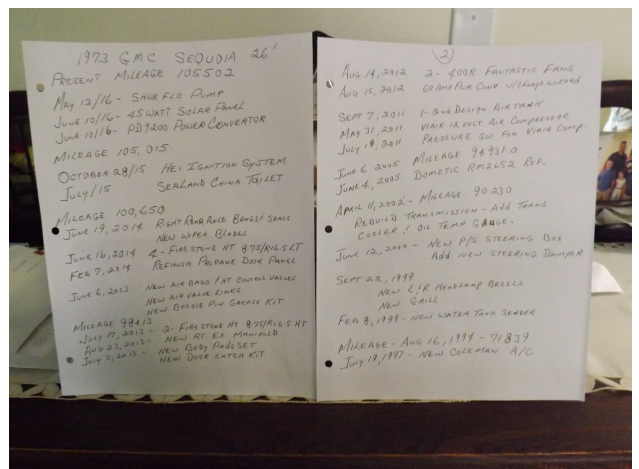 1973 GMC SEQUOIA 26'
PRESENT MILEAGE 105502
MAY 12/16 - SHURFLO PUMP
JUNE 10/16 - 45 WATT SOLAR PANEL
JUNE 10/16 - PD9200 POWER CONVERTOR
MILEAGE 105,015
OCTOBER 28/15 HEI IGNITION SYSTEM
JULY/15 SEALAND CHINA TOILET
MILEAGE 100,650
JUNE 19, 2014 RIGHT REAR AXLE BRNGS/SEALS
NEW WIPER BLADES
JUNE 16, 2014 4-FIRESTONE HT 8.75/R16.5 LT
FEB 7, 2014 REFINISH PROPANE DOOR PANEL
JUNE 6, 2013 NEW AIR BAGS/HT CONTROL VALVES
NEW AIR VALVE LINKS
NEW BOGGIE PIN GREASE KIT
MILEAGE 98413
JULY 17, 2013 - 2-FIRESTONE HT 8.75/R16.5 HT
AUG 23, 2013 - NEW RT. EX MANIFOLD
JULY 2, 2013 - NEW BODY PADS SET
NEW DOOR LATCH KIT
2
AUG 14, 2012 2-400R FANTASTIC FANS
AUG 15, 2012 60 AMP PWR CONV W/CHARGE WIZARD
SEPT 7, 2011 1-2nd DESIGN AIR TANK
MAY 31, 2011 VIAIR 12 VOLT AIR COMPRESSOR
JULY 19, 2011 PRESSURE SW FOR VIAIR COMP.
JUNE 6 2005 MILEAGE 94931.0
JUNE 4, 2005 DOMETIC RM2652 REF.
APRIL 11, 2002 - MILEAGE 90230
REBUILD TRANSMISSION - ADD TRANS
COOLER / OIL TEMP GAUGE.
JUNE 12, 2000 - NEW P/S STEERING BOX
ADD NEW STEERING DAMPER
SEPT 22, 1999
NEW L/R HEADLAMP BEZELS
NEW GRILL
FEB 8, 1999 - NEW WATER TANK SENDER
MILEAGE - AUG 16, 1997 - 71839
JULY 19, 1997 - NEW COLEMAN A/C